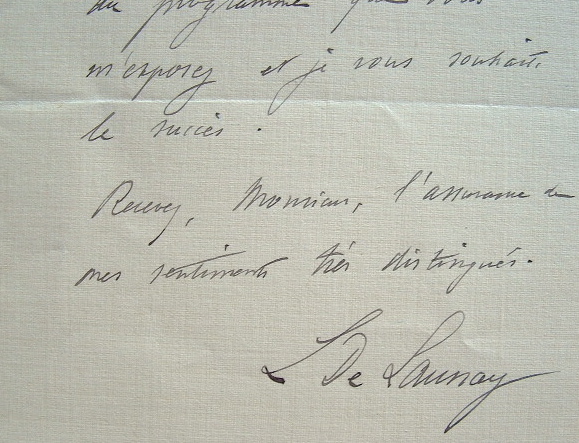 du programme que vous
m'exposez et je vous souhaite
le succès.
Recevez, Monsieur, l'assurance de
mes sentiments très distingués.
L De Launay